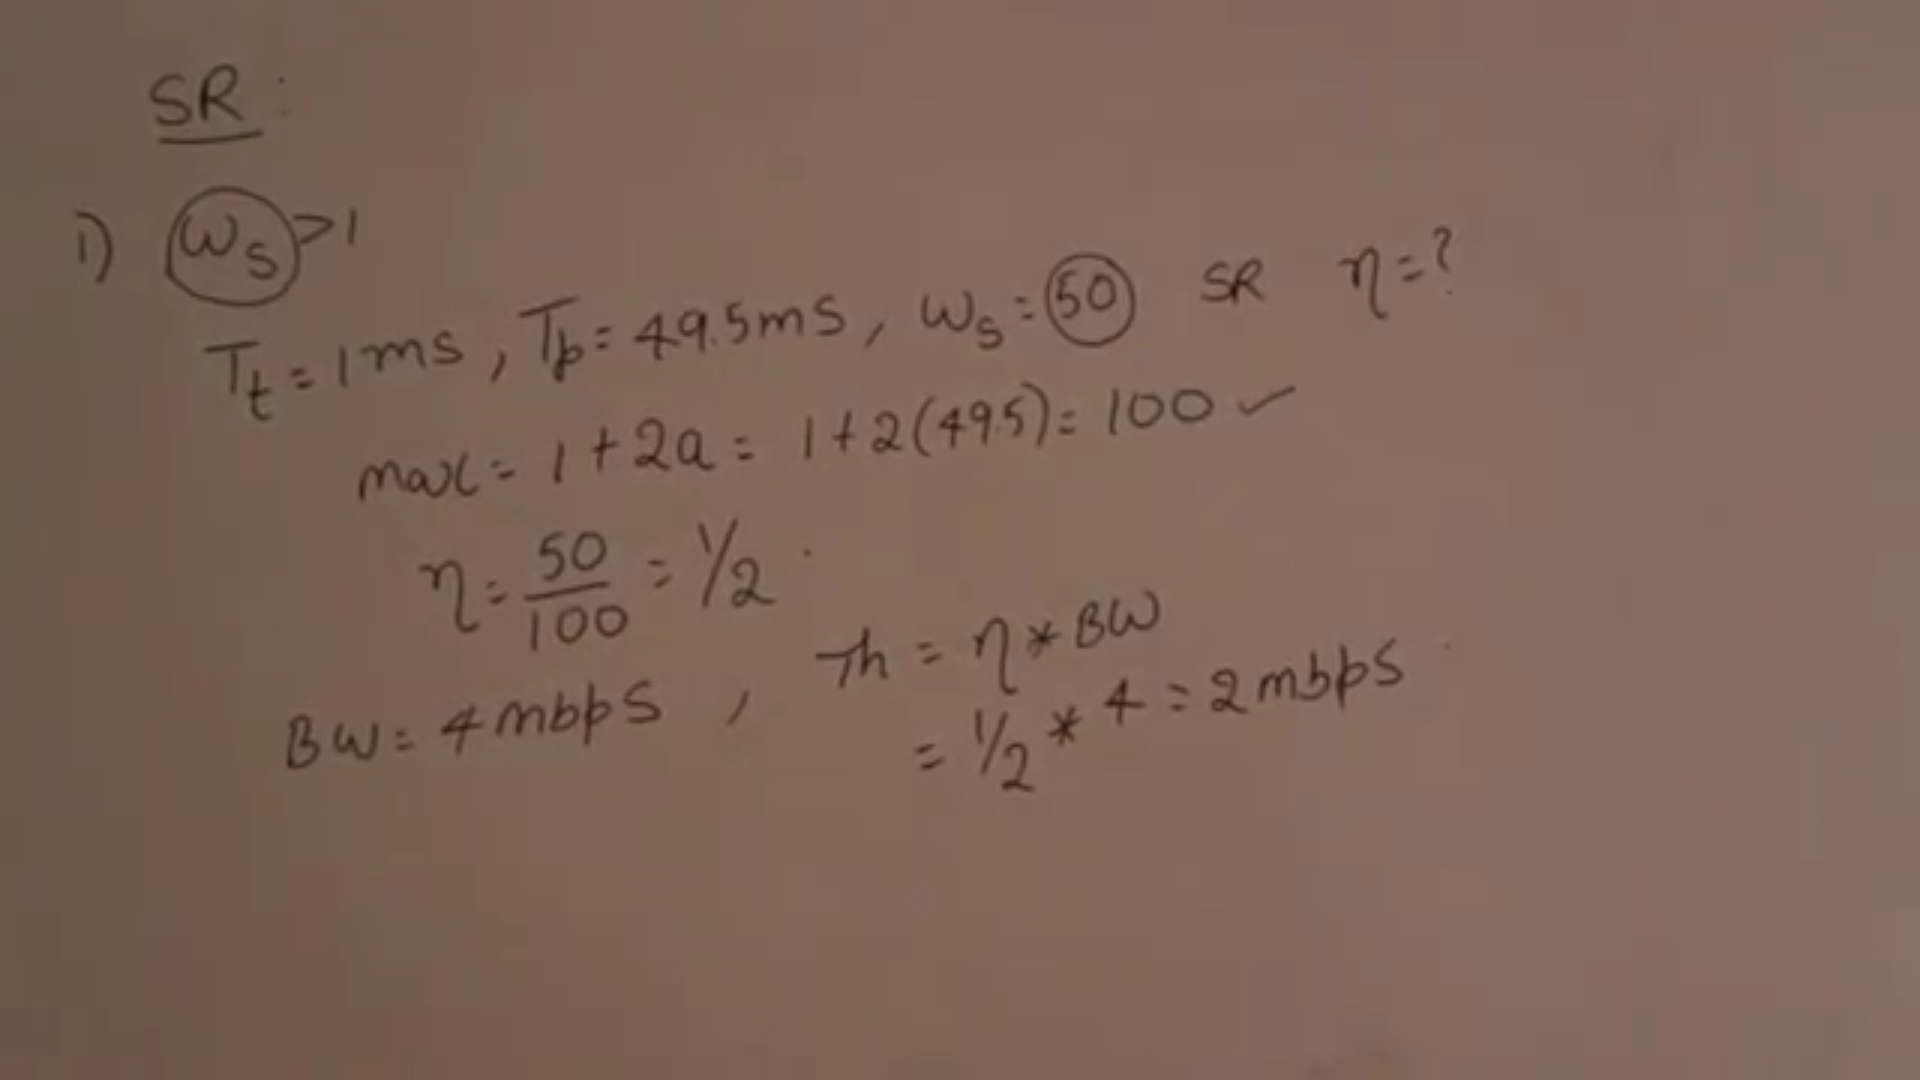 SR:
1) Ws>1
Tt=1ms, Tp=49.5ms, Ws=50 SR η=?
max= 1+2a= 1+2(49.5)=100✓
η=50/100=1/2
BW=4mbps, Th=η*BW
=1/2*4=2mbps